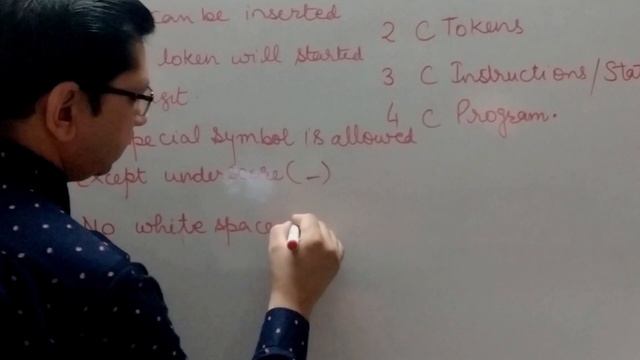 can be inserted
token will started
pecial symbol is allowed
except underscore (_)
No white space
2 C Tokens
3 C Instructions/Stat
4 C Program.